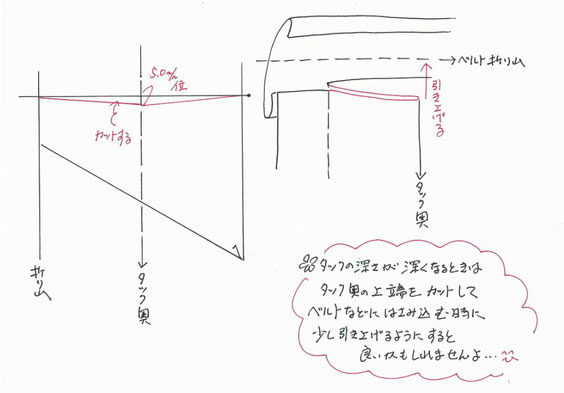 5.0m/m
位
カットする
折り山
タック奥
ベルト折り山
引き上げる
タック奥
タックの深さが深くなるときは
タック奥の上端をカットして
ベルトなどにはさみ込む時に
少し引き上げるようにすると
良いかもしれませんよ…